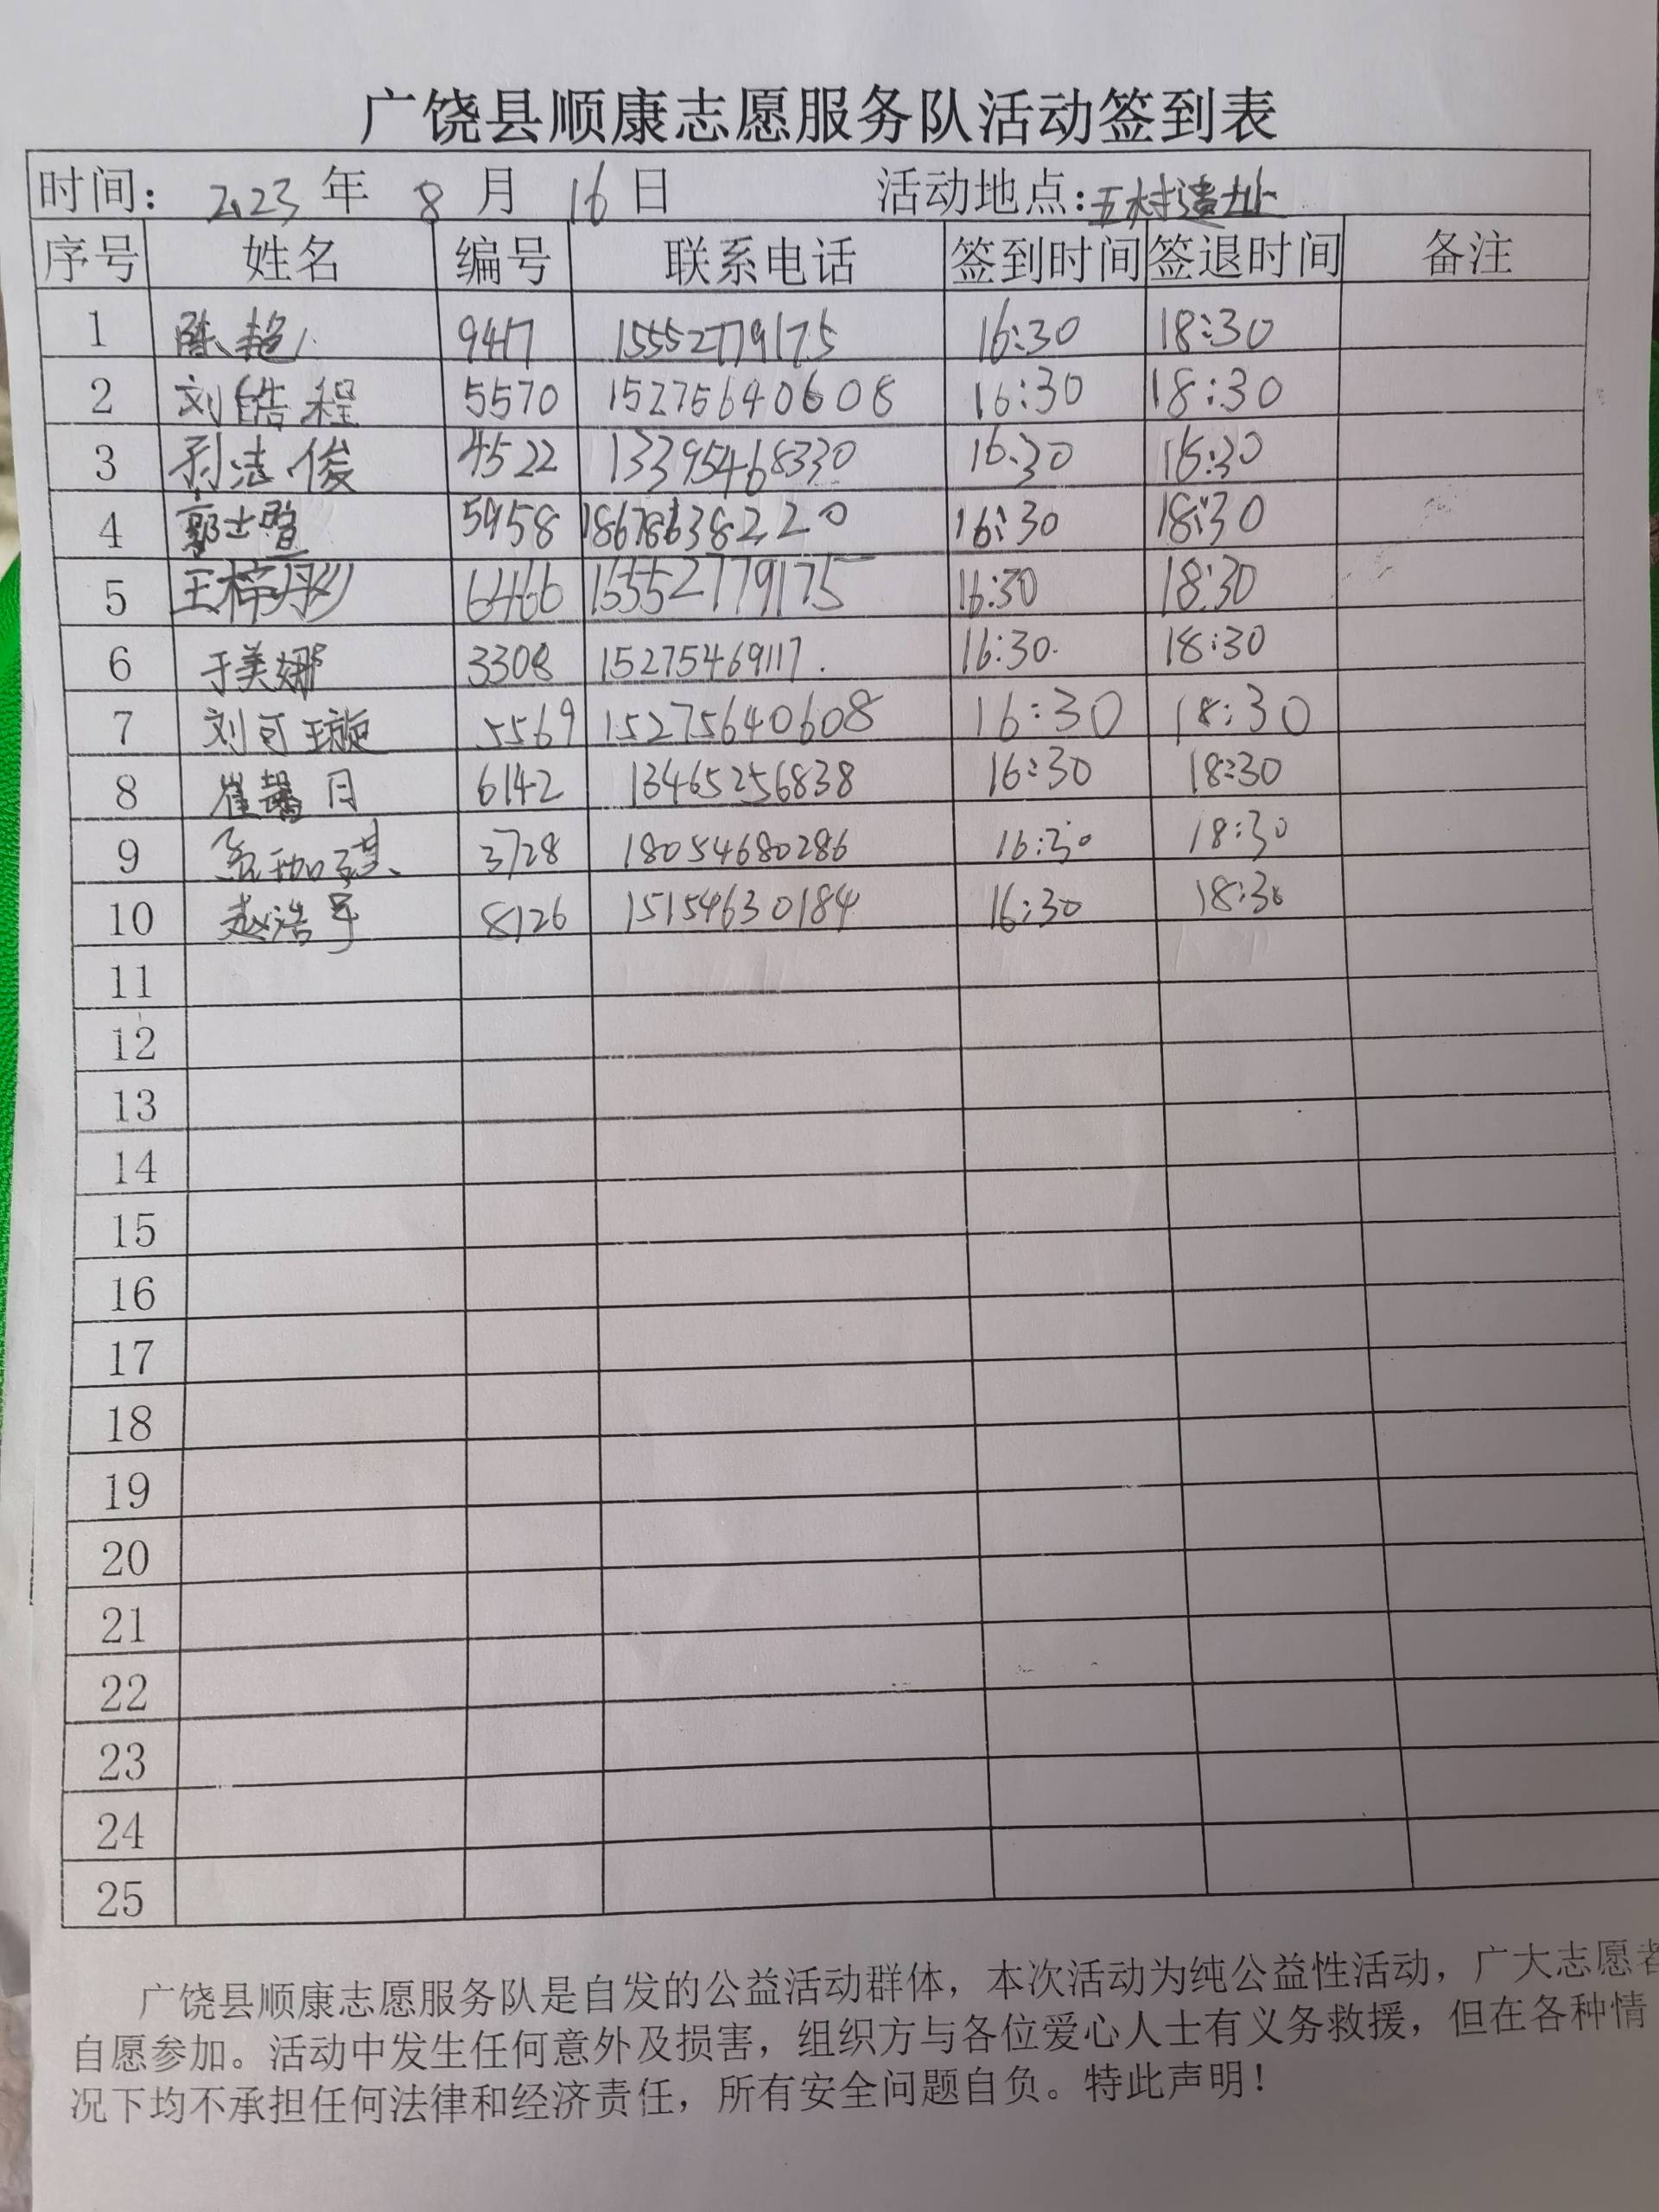 广饶县顺康志愿服务队活动签到表
时间： 2023 年 8 月 16 日 活动地点：五村遗址
序号 姓名 编号 联系电话 签到时间 签退时间 备注
1 陈艳 9417 15552779175 16:30 18:30
2 刘皓程 5570 15275640608 16:30 18:30
3 孙洁俊 4522 13395468330 16:30 18:30
4 郭士萱 5958 18678638220 16:30 18:30
5 王梓丹 6466 15552779175 16:30 18:30
6 于美娜 3308 15275469117. 16:30 18:30
7 刘可璇 5569 15275640608 16:30 18:30
8 崔馨月 6142 13465256838 16:30 18:30
9 3728 18054680286 16:30 18:30
10 赵浩 8126 15154630184 16:30 18:30
11
12
13
14
15
16
17
18
19
20
21
22
23
24
25
广饶县顺康志愿服务队是自发的公益活动群体，本次活动为纯公益性活动，广大志愿者
自愿参加。活动中发生任何意外及损害，组织方与各位爱心人士有义务救援，但在各种情
况下均不承担任何法律和经济责任，所有安全问题自负。特此声明！